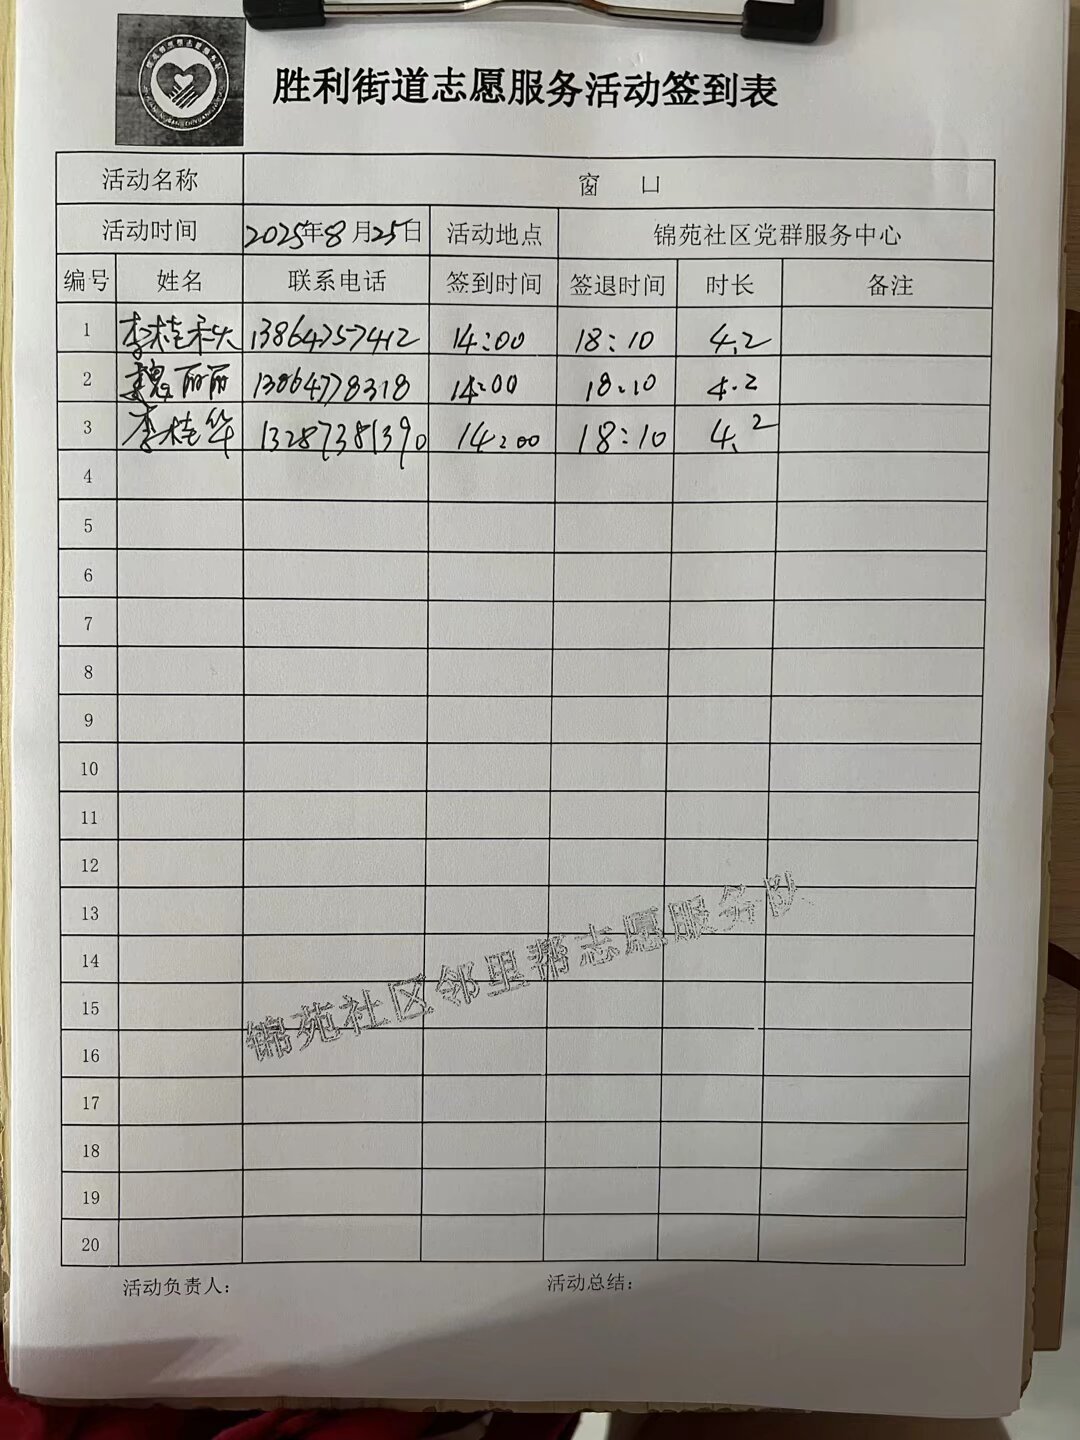 胜利街道志愿服务活动签到表
活动名称 窗 口
活动时间 2025年8月25日 活动地点 锦苑社区党群服务中心
编号 姓名 联系电话 签到时间 签退时间 时长 备注
1 李桂秋 13864757412 14:00 18:10 4.2
2 魏丽丽 13864778318 14:00 18:10 4.2
3 李桂华 13287381390 14:00 18:10 4.2
4
5
6
7
8
9
10
11
12
13
14
15
16
17
18
19
20
锦苑社区邻里帮志愿服务队
活动负责人: 活动总结: